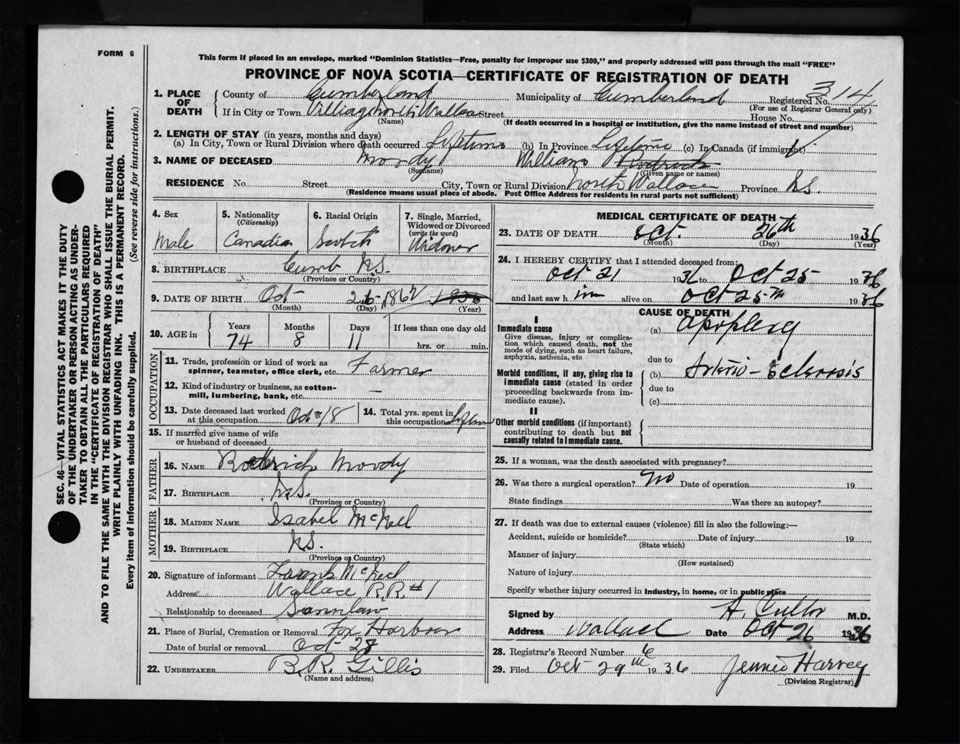 FORM 6
This form if placed in an envelope, marked "Dominion Statistics—Free, penalty for improper use $300," and properly addressed will pass through the mail "FREE"
PROVINCE OF NOVA SCOTIA—CERTIFICATE OF REGISTRATION OF DEATH
SEC. 46—VITAL STATISTICS ACT MAKES IT THE DUTY
OF THE UNDERTAKER OR PERSON ACTING AS UNDER-
TAKER TO OBTAIN ALL THE PARTICULARS REQUIRED
IN THE "CERTIFICATE OF REGISTRATION OF DEATH"
AND TO FILE THE SAME WITH THE DIVISION REGISTRAR WHO SHALL ISSUE THE BURIAL PERMIT.
WRITE PLAINLY WITH UNFADING INK. THIS IS A PERMANENT RECORD.
Every item of information should be carefully supplied. (See reverse side for instructions.)
1. PLACE OF DEATH County of Cumberland Municipality of Cumberland Registered No. 314
(For use of Registrar General only)
If in City or Town Village North Wallace Street House No.
(Name) (If death occurred in a hospital or institution, give the name instead of street and number)
2. LENGTH OF STAY (in years, months and days)
(a) In City, Town or Rural Division where death occurred Lifetime (b) In Province Lifetime (c) In Canada (if immigrant)
3. NAME OF DECEASED Moody William Roderick
(Surname) (Given name or names)
RESIDENCE No. Street City, Town or Rural Division North Wallace Province N.S.
(Residence means usual place of abode. Post Office Address for residents in rural parts not sufficient)
4. Sex Male
5. Nationality (Citizenship) Canadian
6. Racial Origin Scotch
7. Single, Married, Widowed or Divorced (write the word) Widower
8. BIRTHPLACE Cumb N.S.
(Province or Country)
9. DATE OF BIRTH Oct 26 1862 1936
(Month) (Day) (Year)
10. AGE in Years 74 Months 8 Days 11 If less than one day old hrs. or min.
OCCUPATION
11. Trade, profession or kind of work as spinner, teamster, office clerk, etc. Farmer
12. Kind of industry or business, as cotton-mill, lumbering, bank, etc. —
13. Date deceased last worked at this occupation Oct 18
14. Total yrs. spent in this occupation
15. If married give name of wife or husband of deceased
FATHER
16. NAME Roderick Moody
17. BIRTHPLACE N.S.
(Province or Country)
MOTHER
18. MAIDEN NAME Isabel McNeil
19. BIRTHPLACE N.S.
(Province or Country)
20. Signature of informant Frank McNeil
Address Wallace R.R. #1
Relationship to deceased Sonnlaw
21. Place of Burial, Cremation or Removal Fox Harbour
Date of burial or removal Oct 28
22. UNDERTAKER B.R. Gillis
(Name and address)
MEDICAL CERTIFICATE OF DEATH
23. DATE OF DEATH Oct. 26th 1936
(Month) (Day)
24. I HEREBY CERTIFY that I attended deceased from:
Oct 21 1936 to Oct 25 1936
and last saw him alive on Oct 25th 1936
CAUSE OF DEATH
I
Immediate cause
Give disease, injury or complication, asphyxia caused death, not the mode of dying, such as heart failure, asphyxia, asthenia, etc
(a) Apoplexy
due to
Morbid conditions, if any, giving rise to immediate cause (stated in order proceeding backwards from immediate cause).
(b) Arterio-Sclerosis
due to
(c)
II
Other morbid conditions (if important) contributing to death but not causally related to immediate cause.
25. If a woman, was the death associated with pregnancy?
26. Was there a surgical operation? No Date of operation 19
State findings Was there an autopsy?
27. If death was due to external causes (violence) fill in also the following:—
Accident, suicide or homicide? Date of injury 19
(State which)
Manner of injury
(How sustained)
Nature of injury
Specify whether injury occurred in industry, in home, or in public place
Signed by M.D.
Address Wallace Date Oct 26 1936
28. Registrar's Record Number 6
29. Filed Oct 29th 1936 Jennie Harvey
(Division Registrar)